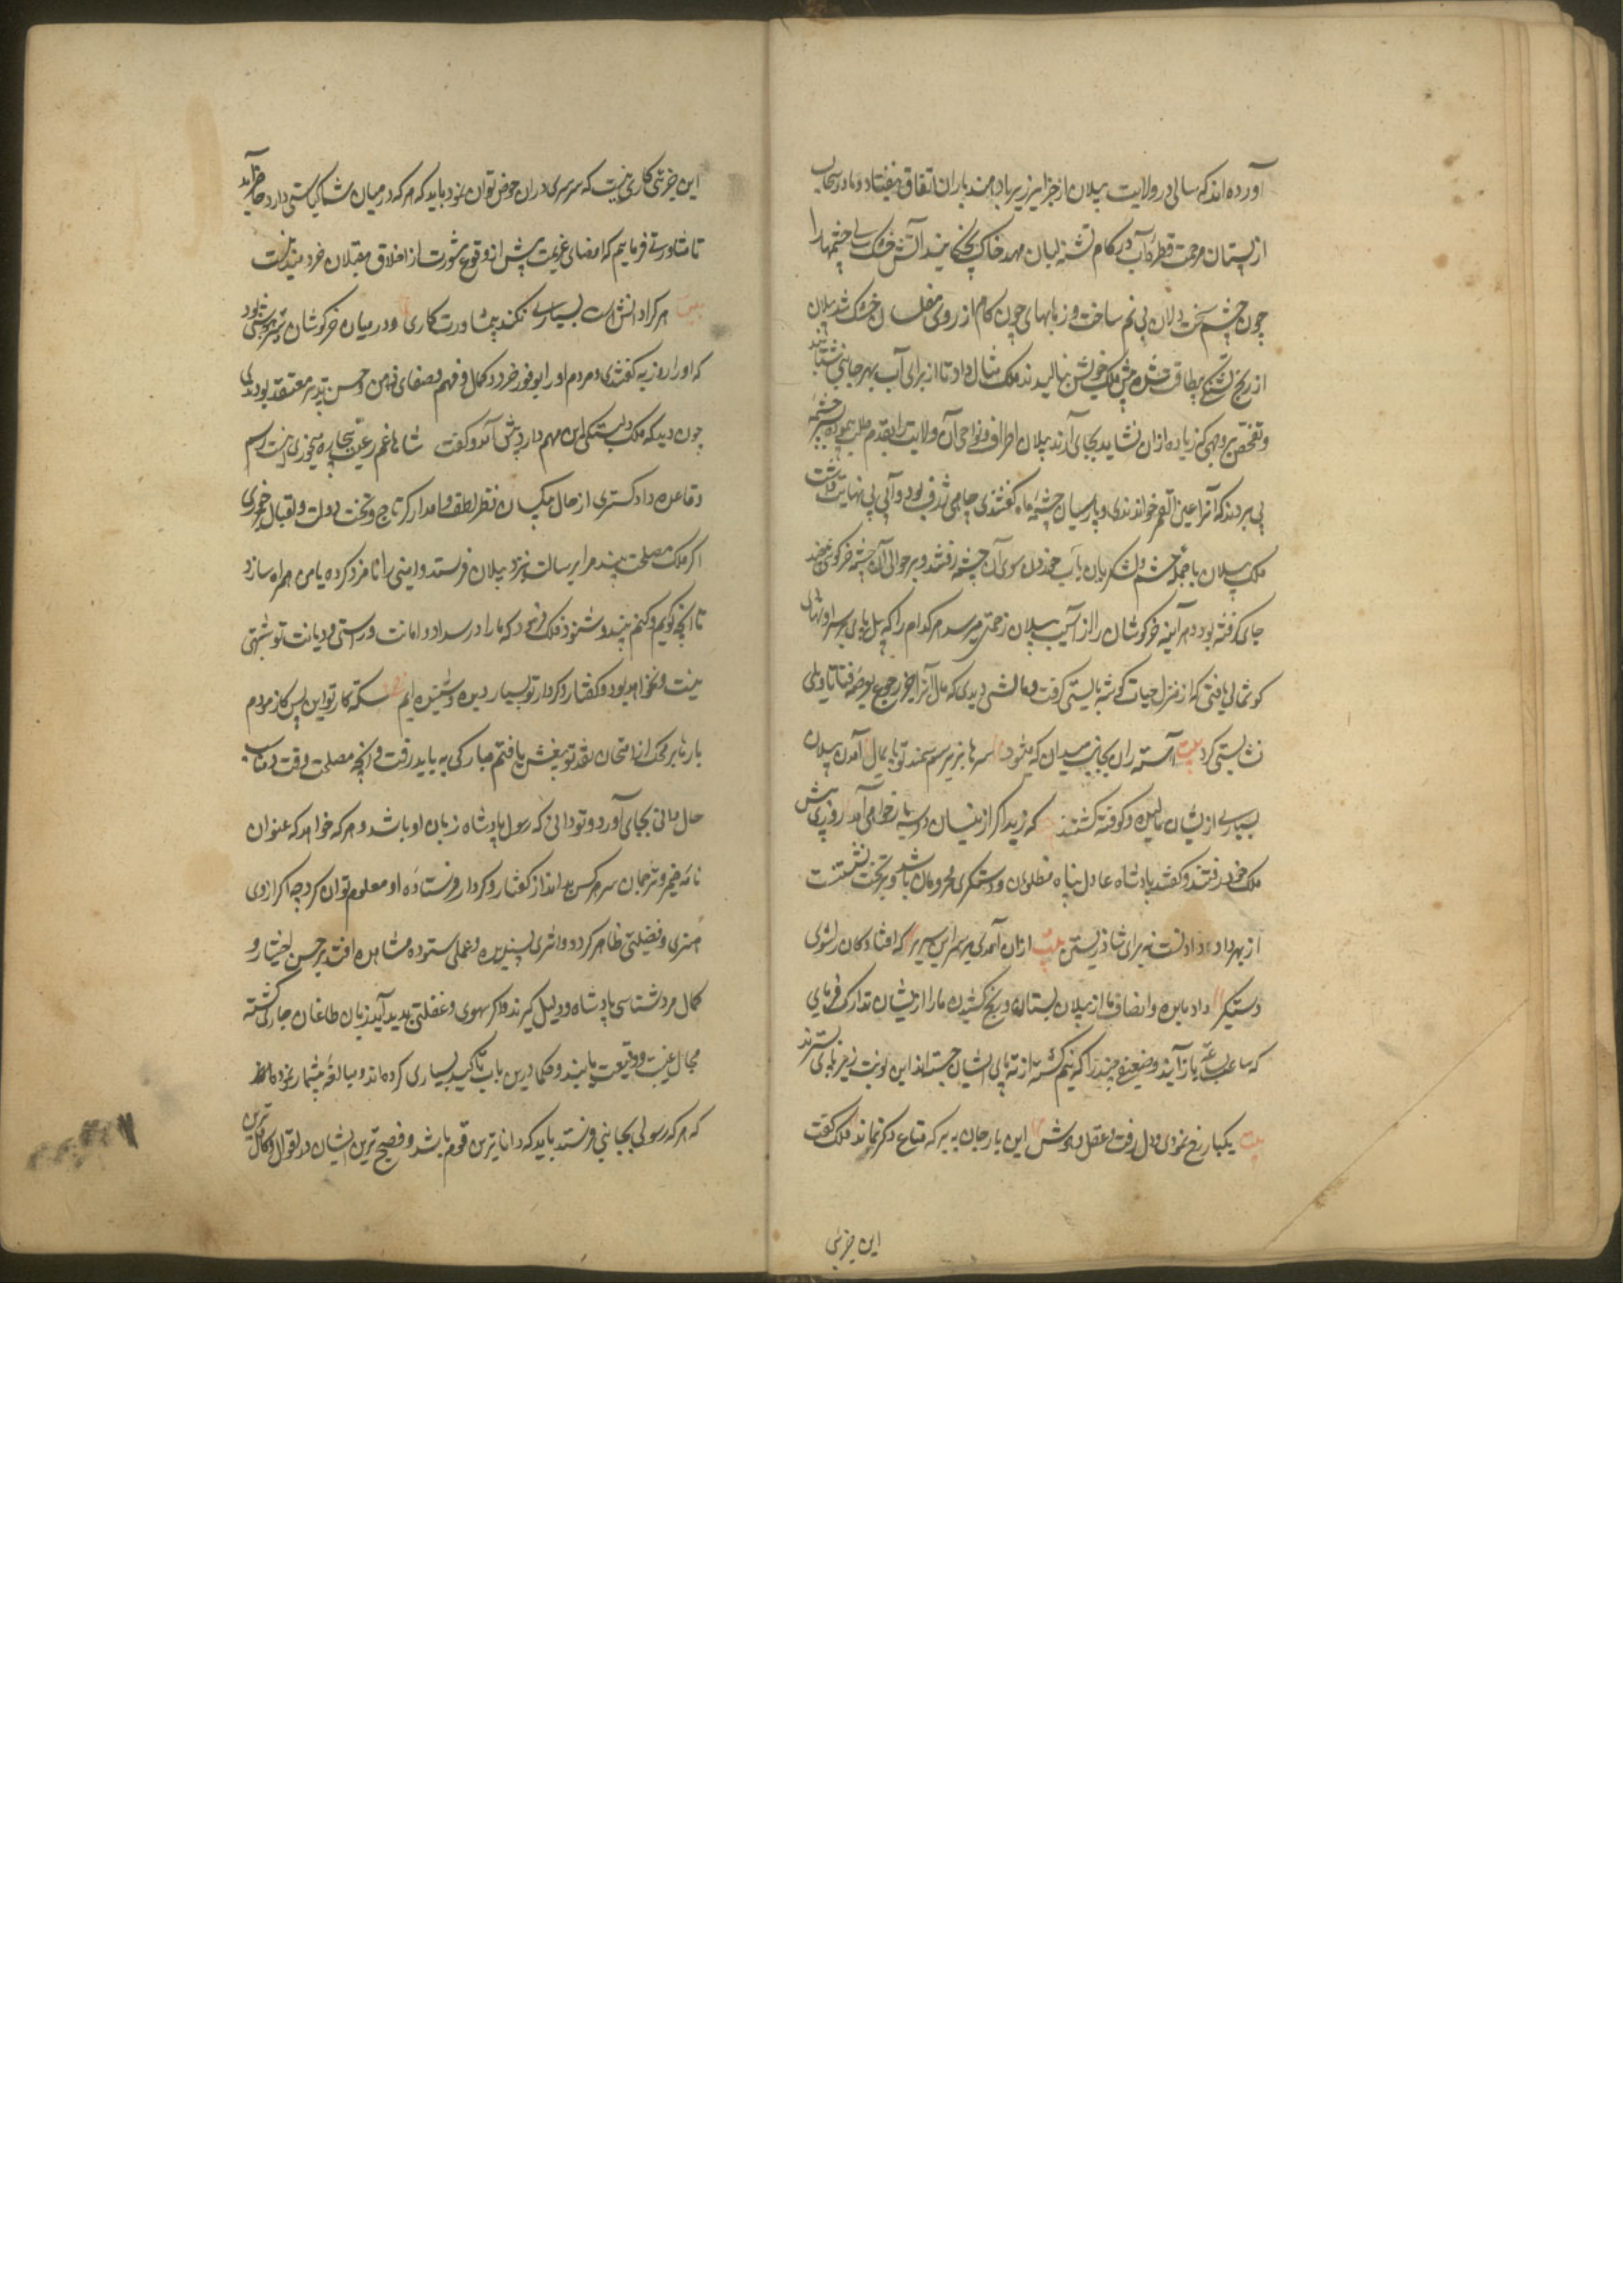 آورده اند که سالی در ولایت پیلان از جزایر زیر باد هند باران اتفاق نیفتاد و مادر سحاب
از پستان مرحمت قطره آب در کام تشنه لبان مهد خاک نچکانید آتش خشک سالی چشمها را
چون چشم سخت دلان بی نم ساخت و زبانهای چون کام از روی مفلسان خشک شد پیلان
از رنج تشنگی بیطاقت شده پیش ملک خویش بنالیدند ملک مثال داد تا از برای آب بهر جانبی بشتابند
و تفحص بر وجهی که زیاده ازان نشاید بجای آرند پیلان اطراف و نواحی آن ولایت را بقدم طلب پیموده بسر چشمه
پی بردند که آنرا عین القمر خواندندی و پارسیان چشمه ماه گفتندی چاهی ژرف بود و آبی بی نهایت داشت
ملک پیلان با جمله حشم و لشکریان بآب خوردن سوی آن چشمه رفتند و بر حوالی آن چشمه خرگوشی چند
جای گرفته بود و هر آینه خرگوشان را از آسیب پیلان زحمتی میرسد هر کدام را که پیل پای بر سر او نهادی
گوشمالی یافتی که از منزل حیات گوشه بایستی گرفت و مالشی دیدی که
نشایستی کرد بیت آهسته ران بجانب میدان که میشود سرها بزیر سم سمند تو پایمال آمدن پیلان
بسیاری ازیشان مالیده و کوفته گشتند که زید اگر ازینسان دو سه بار خواهی آمد روزی پیش
ملک خود رفتند و گفتند پادشاه عادل پناه مظلومان و دستگیر محرومان باشد و بر تخت نشستنست
از بهر داد دادنست نه برای شاد زیستن بیت ازان آمدی بر سر این سریر که افتادگان را شوی
دستگیر داد ما بده و انصاف ما از پیلان بستان و رنج کشیدن ما را ازیشان تدارک فرمای
که ساعت بساعت باز آیند و ضعیفی چند را که نیم کشته از ته پای ایشان جسته اند این نوبت زیر پای بسترند
بیت یکبار رخ نمودی و دل رفت و عقل و هوش این بار جان ببر که متاع دگر نماند ملک گفت
این جزئی
این جزئی کاری نیست که سرسری دران خوض توان نمود باید که هر که در میان شما کیاستی دارد حاضر آید
تا مشاورتی فرمایم که امضای عزیمت پیش از وقوع مشورت از اخلاق مقبلان خردمند نیست
بیت هر کرا دانش است بسیاری نکند بی مشاورت کاری و در میان خرگوشان تیزهوشی بود
که او را روزبه گفتندی و مردم او را بوفور خرد و کمال فهم و صفای ذهن و حسن تدبیر معتقد بودندی
چون دید که ملک دلبستگی این مهم دارد پیش آمد و گفت شاها غم رعیت بیچاره میخوری اینست رسم
و قاعده دادگستری از حال بیکسان نظر لطف وامدار کز تاج و تخت دولت و اقبال برخوری
اگر ملک مصلحت بیند مرا برسالت بنزد پیلان فرستد و امینی را نامزد کرده با من همراه سازد
تا آنچه گویم و کنم بیند و شنود ملک فرمود که ما را در سداد و امانت و راستی و دیانت تو شبهتی
نیست و نخواهد بود و گفتار و کردار تو بسیار دیده و شنیده ایم سکه کار تو این بس کازمودم
بارها بر محک از امتحان نقد تو بیغش یافتم مبارکی به باید رفت و آنچه مصلحت وقت و مناسب
حال دانی بجای آورد و تو دانی که رسول پادشاه زبان او باشد و هر که خواهد که عنوان
نامه ضمیر و ترجمان سر هر کس بداند از گفتار و کردار فرستاده او معلوم توان کرد چه اگر ازوی
هنری و فضیلتی ظاهر گردد و اثری پسندیده و عملی ستوده مشاهده افتد بر حسن اختیار و
کمال مردشناسی پادشاه دلیل گیرند و اگر سهوی و غفلتی پدید آید زبان طاعنان جاری گشته
مجال غیبت و وقیعت یابند و حکما درین باب تاکید بسیاری کرده اند و مبالغه بیشمار نموده اند
که هر که رسولی بجانبی فرستد باید که داناترین قوم باشد و فصیح ترین ایشان در اقوال و کامل ترین